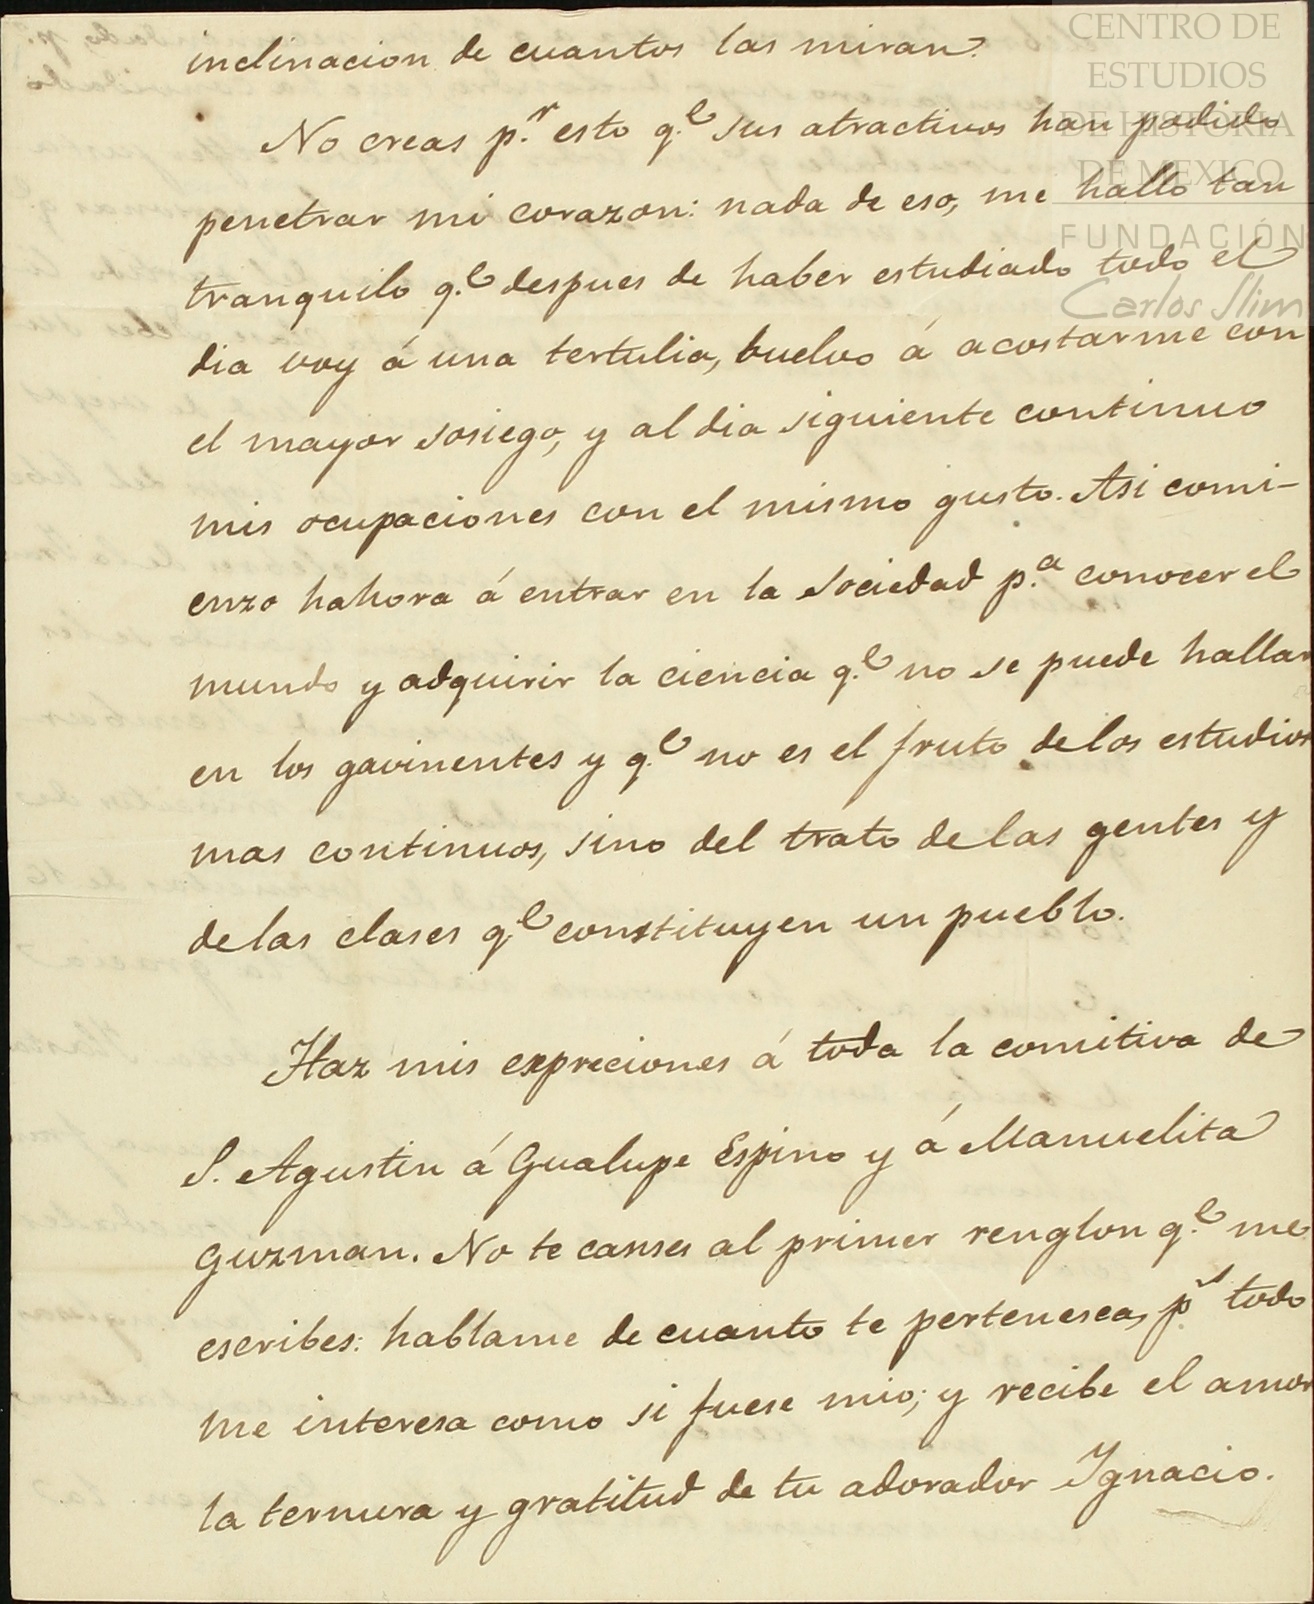 CENTRO DE
ESTUDIOS
DE HISTORIA
DE MEXICO
FUNDACIÓN
Carlos Slim
inclinacion de cuantos las miran.
No creas p.r esto q.e sus atractivos han podido
penetrar mi corazon: nada de eso, me hallo tan
tranquilo q.e despues de haber estudiado todo el
dia voy á una tertulia, buelvo á acostarme con
el mayor sosiego, y al dia siguiente continuo
mis ocupaciones con el mismo gusto. Asi comi-
enzo hahora á entrar en la sociedad p.a conocer el
mundo y adquirir la ciencia q.e no se puede hallar
en los gavinentes y q.e no es el fruto de los estudios
mas continuos, sino del trato de las gentes y
de las clases q.e constituyen un pueblo.
Haz mis expreciones á toda la comitiva de
S. Agustin á Gualupe Espino y á Manuelita
Guzman. No te canses al primer renglon q.e me
escribes: hablame de cuanto te pertenesca, p.s todo
me interesa como si fuese mio; y recibe el amor
la ternura y gratitud de tu adorador Ignacio.